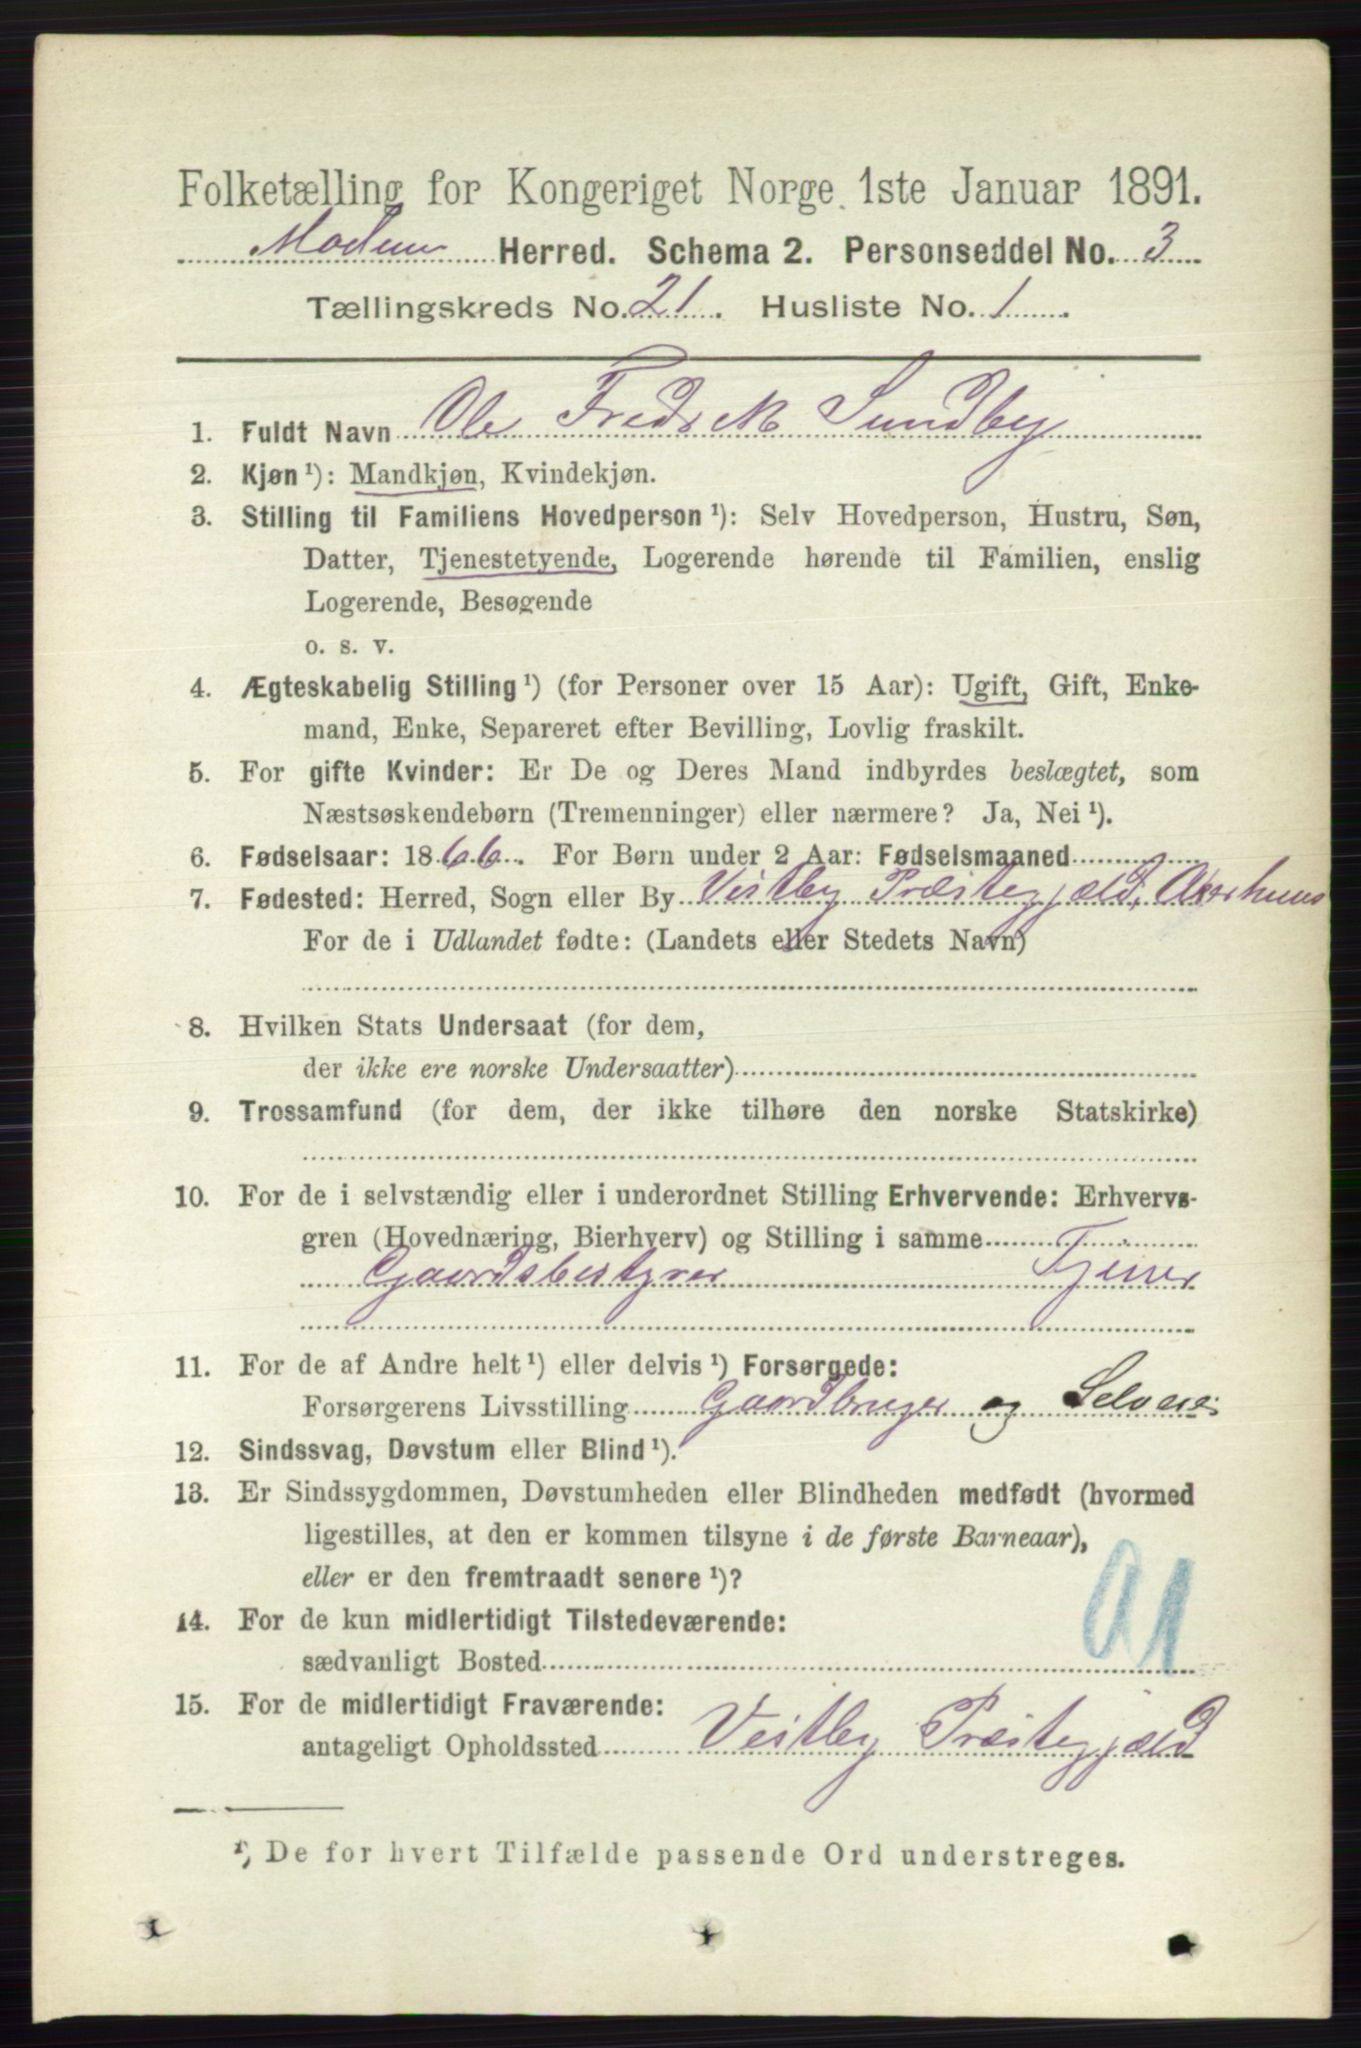 Folketælling for Kongeriget Norge 1ste Januar 1891.
Modum Herred. Schema 2. Personseddel No. 3
Tællingskreds No. 21. Husliste No. 1.
1. Fuldt Navn Ole Fredr M Sundby
2. Kjøn ¹): Mandkjøn, Kvindekjøn.
3. Stilling til Familiens Hovedperson ¹): Selv Hovedperson, Hustru, Søn,
Datter, Tjenestetyende, Logerende hørende til Familien, enslig
Logerende, Besøgende
o. s. v.
4. Ægteskabelig Stilling ¹) (for Personer over 15 Aar): Ugift, Gift, Enke-
mand, Enke, Separeret efter Bevilling, Lovlig fraskilt.
5. For gifte Kvinder: Er De og Deres Mand indbyrdes beslægtet, som
Næstsøskendebørn (Tremenninger) eller nærmere? Ja, Nei ¹).
6. Fødselsaar: 1866. For Børn under 2 Aar: Fødselsmaaned
7. Fødested: Herred, Sogn eller By Vestby Præstegjæld, Akershuus
For de i Udlandet fødte: (Landets eller Stedets Navn)
8. Hvilken Stats Undersaat (for dem,
der ikke ere norske Undersaatter)
9. Trossamfund (for dem, der ikke tilhøre den norske Statskirke)
10. For de i selvstændig eller i underordnet Stilling Erhvervende: Erhvervs-
gren (Hovednæring, Bierhverv) og Stilling i samme
Gaardsbestyrer Tjener
11. For de af Andre helt ¹) eller delvis ¹) Forsørgede:
Forsørgerens Livsstilling Gaardbruger og Selveier
12. Sindssvag, Døvstum eller Blind ¹).
13. Er Sindssygdommen, Døvstumheden eller Blindheden medfødt (hvormed
ligestilles, at den er kommen tilsyne i de første Barneaar),
eller er den fremtraadt senere ¹)?
14. For de kun midlertidigt Tilstedeværende:
sædvanligt Bosted
15. For de midlertidigt Fraværende:
antageligt Opholdssted Vestby Præstegjæld
¹) De for hvert Tilfælde passende Ord understreges.